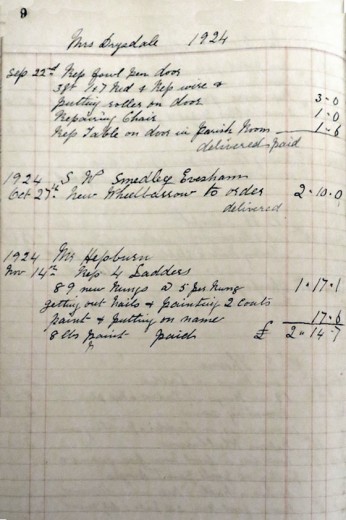 9
Mrs Drysdale 1924
Sep 22nd Rep fowl pen door
3ft 1x7 Red & Rep wire &
putting roller on door 3-0
Repairing Chair 1-0
Rep Table on door in Parish Room 1-6
delivered paid
1924 S W Smedley Evesham
Oct 27th New Wheelbarrow to order 2-10-0
delivered
1924 Mr Hepburn
Nov 14th Rep 4 Ladders
89 new Rungs @ 5 per Rung 1-17-1
getting out Nails & painting 2 Coats
paint & putting on name 17-6
8 lbs paint paid £ 2"14-7